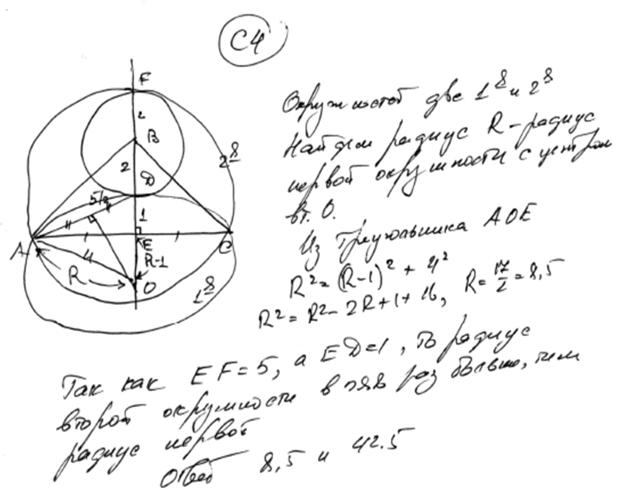 C4
F
2
B
2
D
5/2
4
1
A
E
C
4
R-1
R
O
2й
1й
Окружностей две 1й и 2й
Найдем радиус R-радиус
первой окружности с центром
в т. O.
Из треугольника AOE
R² = (R-1)² + 4²
R² = R² - 2R + 1 + 16, R = 17/2 = 8,5
Так как EF = 5, а ED = 1, то радиус
второй окружности в раз больше, чем
радиус первой
Ответ 8,5 и 42.5